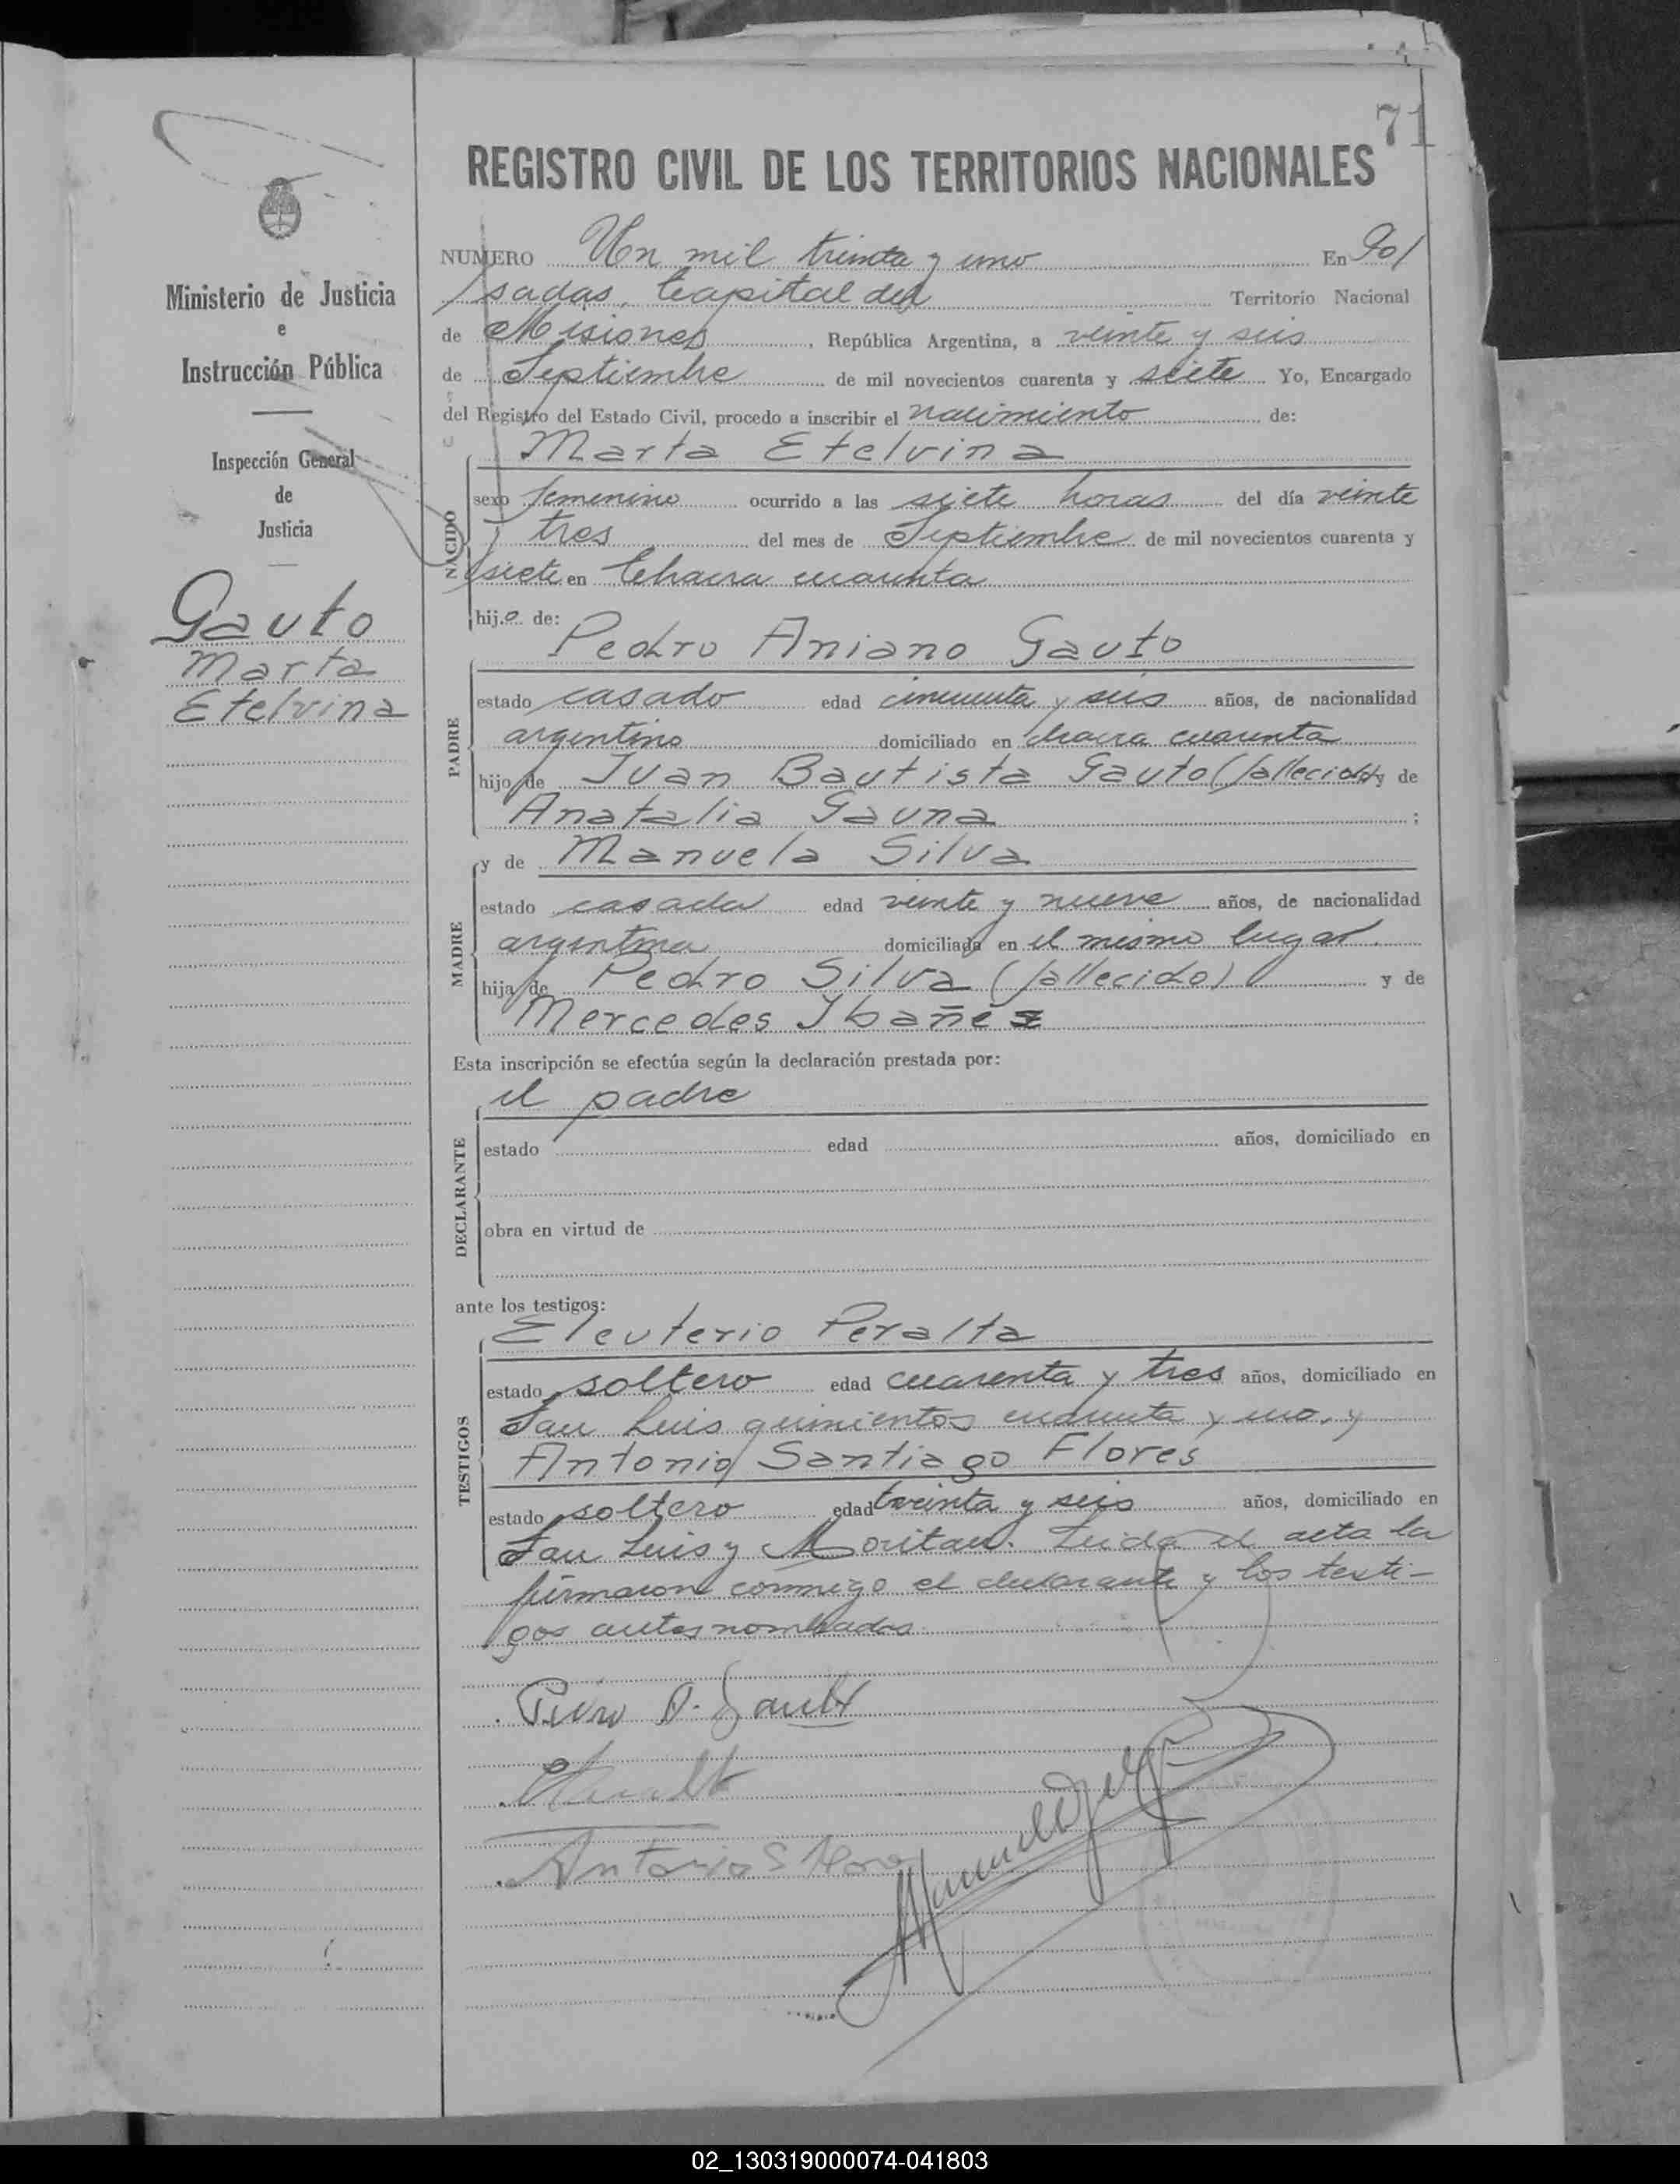 71
REGISTRO CIVIL DE LOS TERRITORIOS NACIONALES
Ministerio de Justicia
e
Instrucción Pública
Inspección General
de
Justicia
Gauto
Marta
Etelvina
NUMERO Un mil treinta y uno En Po/
sadas, Capital del Territorio Nacional
de Misiones, República Argentina, a veinte y seis
de Septiembre de mil novecientos cuarenta y siete Yo, Encargado
del Registro del Estado Civil, procedo a inscribir el nacimiento de:
NACIDO
Marta Etelvina
sexo femenino ocurrido a las siete horas del día veinte
y tres del mes de Septiembre de mil novecientos cuarenta y
siete en Chacra cuarenta
hij.o de:
PADRE
Pedro Aniano Gauto
estado casado edad cincuenta y seis años, de nacionalidad
argentino domiciliado en chacra cuarenta
hijo de Juan Bautista Gauto (fallecido) y de
Anatalia Gauna ;
MADRE
y de Manuela Silva
estado casada edad veinte y nueve años, de nacionalidad
argentina domiciliada en el mismo lugar.
hija de Pedro Silva (fallecido) y de
Mercedes Ibañes
Esta inscripción se efectúa según la declaración prestada por:
DECLARANTE
el padre
estado edad años, domiciliado en
obra en virtud de
ante los testigos:
TESTIGOS
Eleuterio Peralta
estado soltero edad cuarenta y tres años, domiciliado en
San Luis quinientos cuarenta y uno, y
Antonio Santiago Flores
estado soltero edad treinta y seis años, domiciliado en
San Luis y Moritan. Leida el acta la
firmaron conmigo el declarante y los testi-
gos antes nombrados.
Pedro A. Gauto
Antonio S Flores
02_130319000074-041803